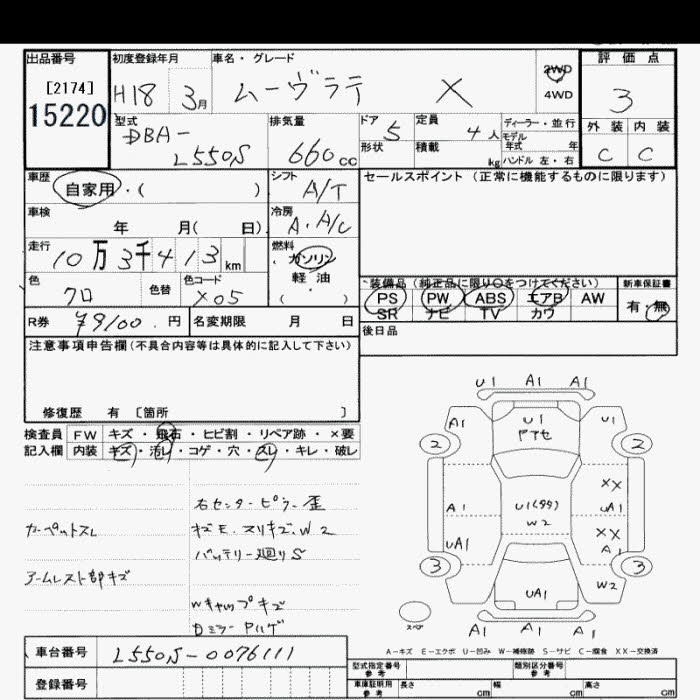 出品番号
[2174]
15220
初度登録年月
H18 3月
車名・グレード
ムーヴラテ X
2WD
4WD
評価点
3
外装 内装
C C
型式
DBA-
L550S
排気量
660cc
ドア 5
形状
定員 4人
積載 kg
ディーラー・並行
モデル
年式 年
ハンドル 左・右
車歴
自家用・( )
シフト
A/T
セールスポイント(正常に機能するものに限ります)
車検
年 月( 日)
冷房
A・A/C
走行
10万3千413km
燃料
ガソリン
・軽油
・( )
色
クロ
色替
色コード
X05
装備品(純正品に限り○をつけてください)
PS PW ABS エアB AW
SR ナビ TV カワ
新車保証書
有・無
R券 ¥9100.円
名変期限 月 日
後日品
注意事項申告欄(不具合内容等は具体的に記入して下さい)
修復歴 有 〔箇所 〕
検査員 FW キズ・飛石・ヒビ割・リペア跡・×要
記入欄 内装 キズ・汚レ・コゲ・穴・スレ・キレ・破レ
右センターピラー歪
カーペットスレ
キズモ.スリキズ.W2
バッテリー廻りS
アームレスト部キズ
Wキャップキズ
Dミラー Pハゲ
U1 A1 A1
A1 U1 U1
ヤアセ
2 2
XX
A1 U1(タタ) UA1
W2
XX
UA1 A1
3 3
UA1 W2
スペア
A1 A1 A1
A-キズ E-エクボ U-凹み W-補修跡 S-サビ C-腐食 XX-交換済
車台番号 L550S-0076111
登録番号
型式指定番号
参考
類別区分番号
参考
車庫証明用
参考
長さ cm 幅 cm 高さ cm